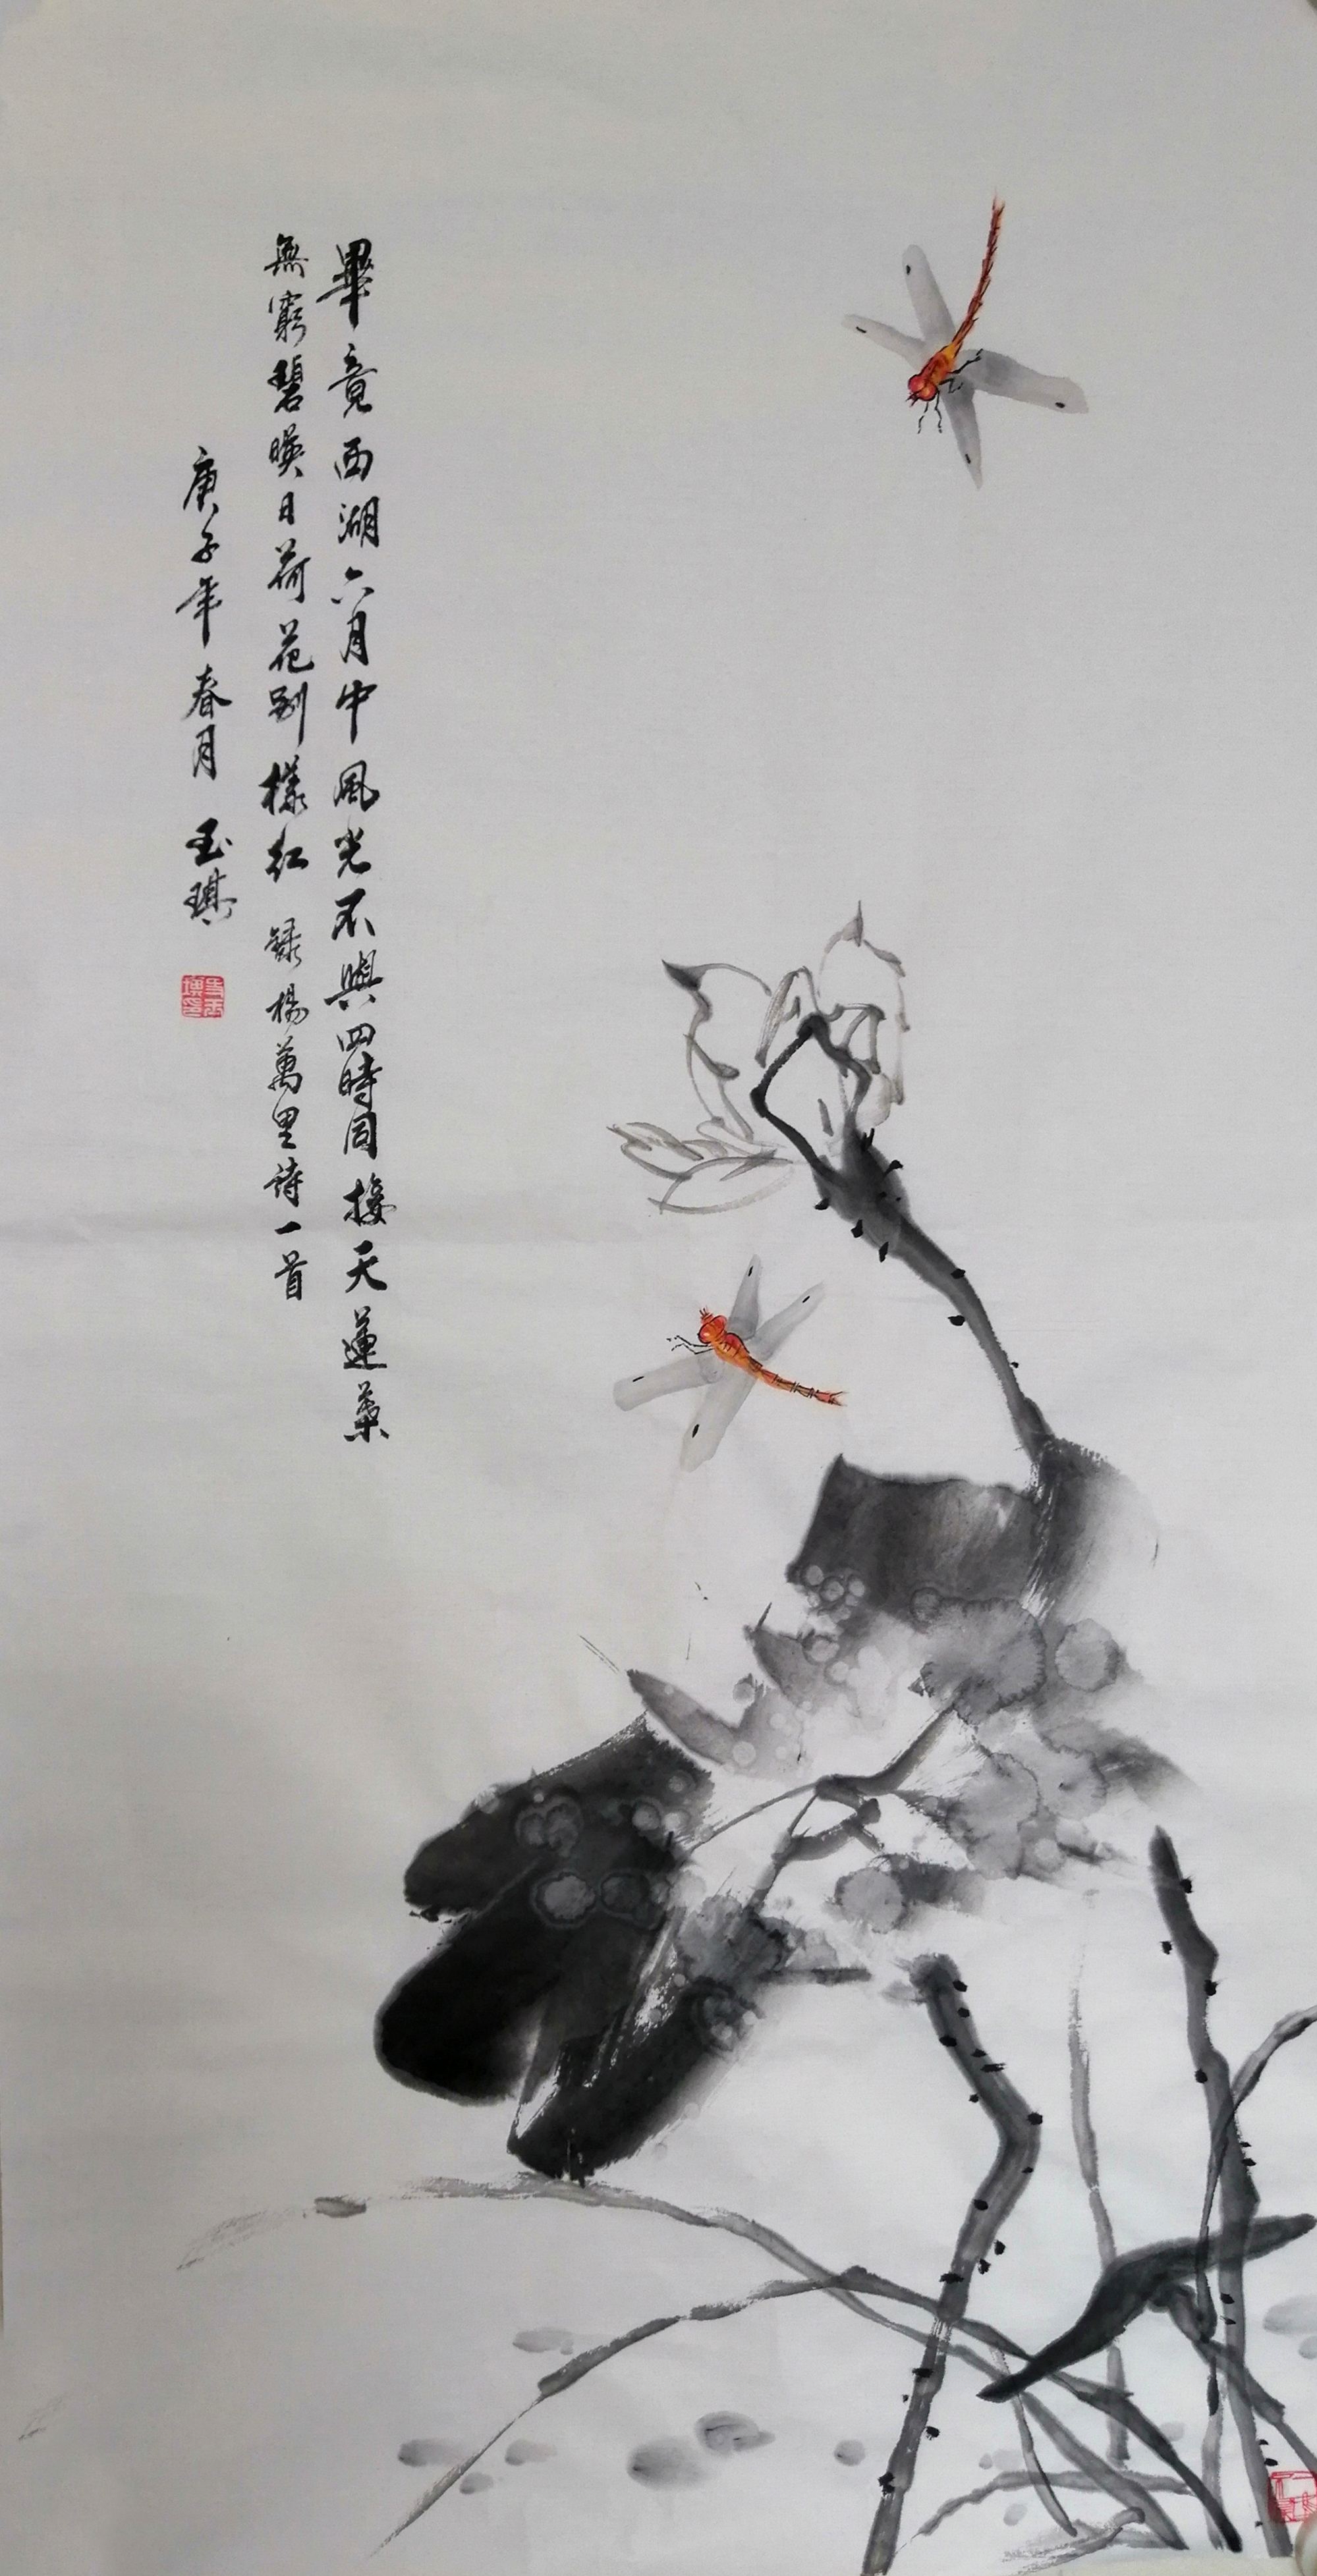 畢竟西湖六月中風光不與四時同接天蓮葉
無窮碧暎日荷花別樣紅 録楊萬里詩一首
庚子年春月 玉琪